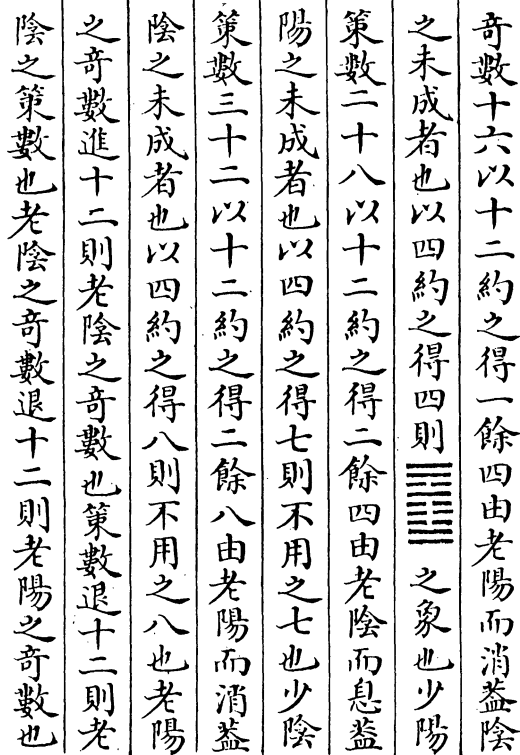 奇數十六以十二約之得一餘四由老陽而消葢陰
之未成者也以四約之得四則之象也少陽
策數二十八以十二約之得二餘四由老陰而息葢
陽之未成者也以四約之得七則不用之七也少陰
策數三十二以十二約之得二餘八由老陽而消葢
陰之未成者也以四約之得八則不用之八也老陽
之奇數進十二則老陰之奇數也策數退十二則老
陰之策數也老陰之奇數退十二則老陽之奇數也